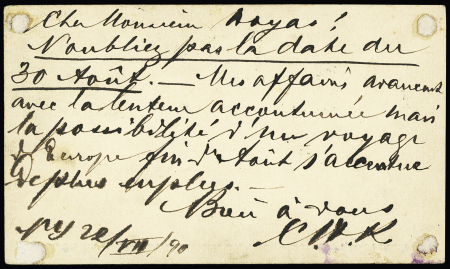 Cher Monsieur Royas!
N'oubliez pas la date du
30 Août. — Mes affaires avancent
avec la lenteur accoutumée mais
la possibilité d'un voyage
d'Europe fin d'Août s'accentue
de plus en plus. —
Bien à vous
NY 22/VII/90